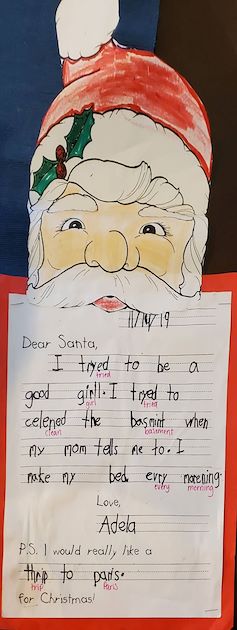 11/14/19
Dear Santa,
I tryed to be a
tried
good girll. I tryed to
girl tried
celened the basmint when
clean basement
my mom tells me to. I
make my bed evry morening.
every morning
Love,
Adela
P.S. I would really like a
thrip to paris.
trip Paris
for Christmas!